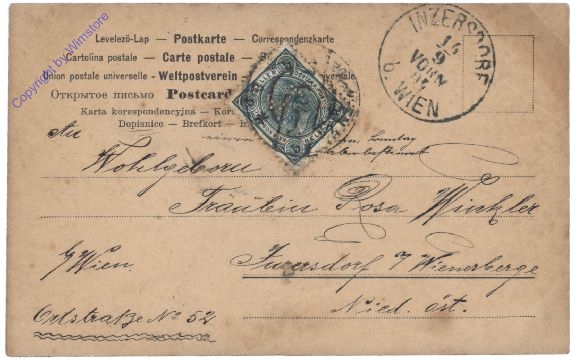 Copyright by Wimstore
Levelező-Lap — Postkarte — Correspondenzkarte
Cartolina postale — Carte postale —
Union postale universelle - Weltpostverein -
Открытое письмо Postcard
Karta korespondencyjna —
Dopisnice — Brefkort —
INZERSDORF
14
9
VORM
b. WIEN
HELLER
An
Wohlgeboren
Fräulein Rosa Winkler
b/Wien.
Inzersdorf a/Wienerberge
Ortstraße No 52
Nied. öst.